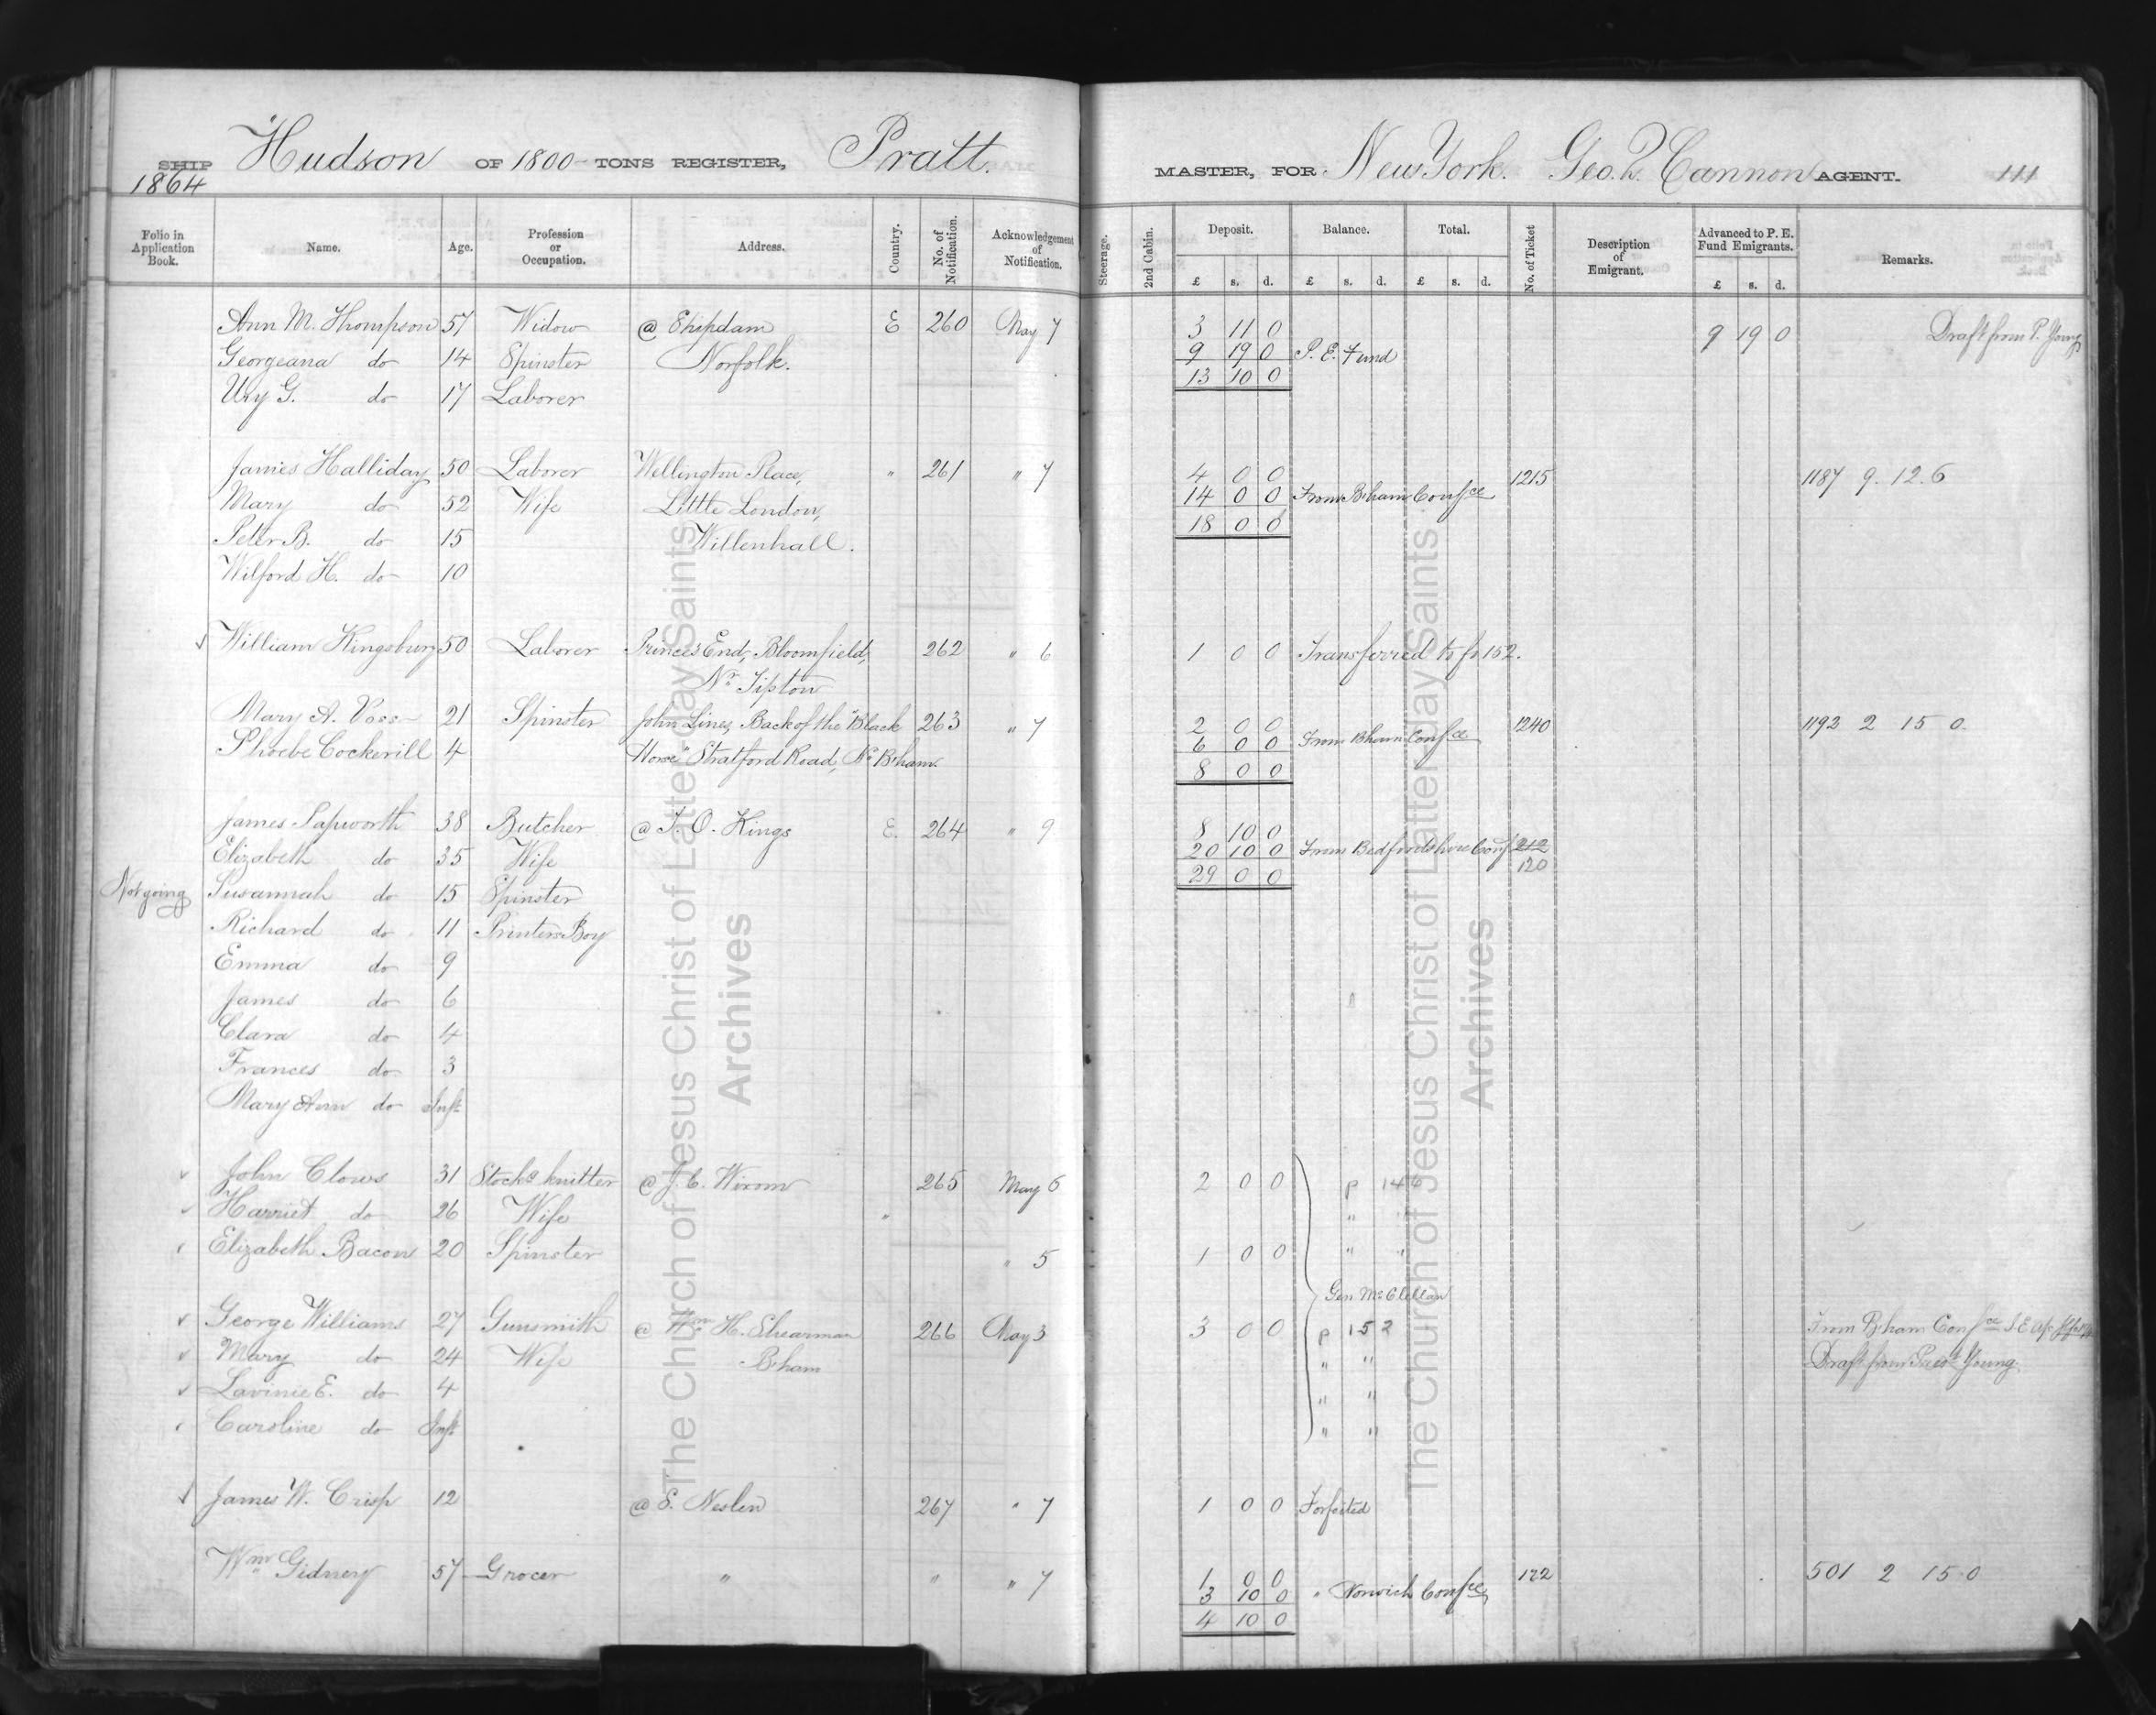 SHIP Hudson OF 1800 TONS REGISTER, Pratt. MASTER, FOR New York. Geo. Q. Cannon AGENT. 111
1864
Folio in Application Book. Name. Age. Profession or Occupation. Address. Country. No. of Notification. Acknowledgement of Notification. Steerage. 2nd Cabin. Deposit. Balance. Total. No. of Ticket Description of Emigrant. Advanced to P. E. Fund Emigrants. Remarks.
£ s. d. £ s. d. £ s. d. £ s. d.
Ann M. Thompson 57 Widow @ Shipdam E 260 May 7 3 11 0 9 19 0 Draft from P. Young
Georgeana do 14 Spinster Norfolk. 9 19 0 P. E. Fund
13 10 0
Ury G. do 17 Laborer
James Halliday 50 Laborer Wellington Place, " 261 " 7 4 0 0 1215 1187 9. 12. 6
Mary do 52 Wife Little London, 14 0 0 From B.ham Confce
18 0 0
Peter B. do 15 Willenhall.
Wilford H. do 10
William Kingsbury 50 Laborer Princes End, Bloomfield, 262 " 6 1 0 0 Transferred to fo 152.
Nr. Tipton
Mary A. Voss 21 Spinster John Lines, Back of the "Black 263 " 7 2 0 0 1240 1193 2 15 0.
6 0 0 From Bham Confce
Phoebe Cockerill 4 Horse" Stratford Road, Nr. B.ham.
8 0 0
James Papworth 38 Butcher @ T. O. Kings E. 264 " 9 8 10 0
Elizabeth do 35 Wife 20 10 0 From Bedfordshire Conf 212
29 0 0 120
Not going Susannah do 15 Spinster
Richard do 11 Printers Boy
Emma do 9
James do 6
Clara do 4
Frances do 3
Mary Ann do Inft
John Clows 31 Stockg knitter @ J. C. Wixom 265 May 6 2 0 0 p 146
Harriet do 26 Wife " " "
Elizabeth Bacon 20 Spinster " 5 1 0 0 " "
Gen. McClellan
George Williams 27 Gunsmith @ Wm. H. Shearman 266 May 3 3 0 0 p 152 From B.ham Confce
Mary do 24 Wife B.ham " " Draft from Prest. Young.
Lavinie E. do 4 " "
Caroline do Inft " "
James W. Crisp 12 @ S. Neslen 267 " 7 1 0 0 Forfeited
Wm. Gidney 57 Grocer " " " 7 1 0 0 172 501 2 15 0
3 10 0 " Norwich Confce
4 10 0
The Church of Jesus Christ of Latter day Saints
Archives
The Church of Jesus Christ of Latter day Saints
Archives